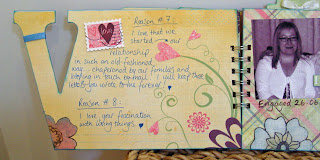 Reason # 7:
I love that we
started our
relationship
in such an old-fashioned
way.. chaperoned by our families and
keeping in touch by mail. I will keep those
letters you wrote to me forever!
Reason # 8:
I love your fascination
with living things.
Love
Engaged 26-06